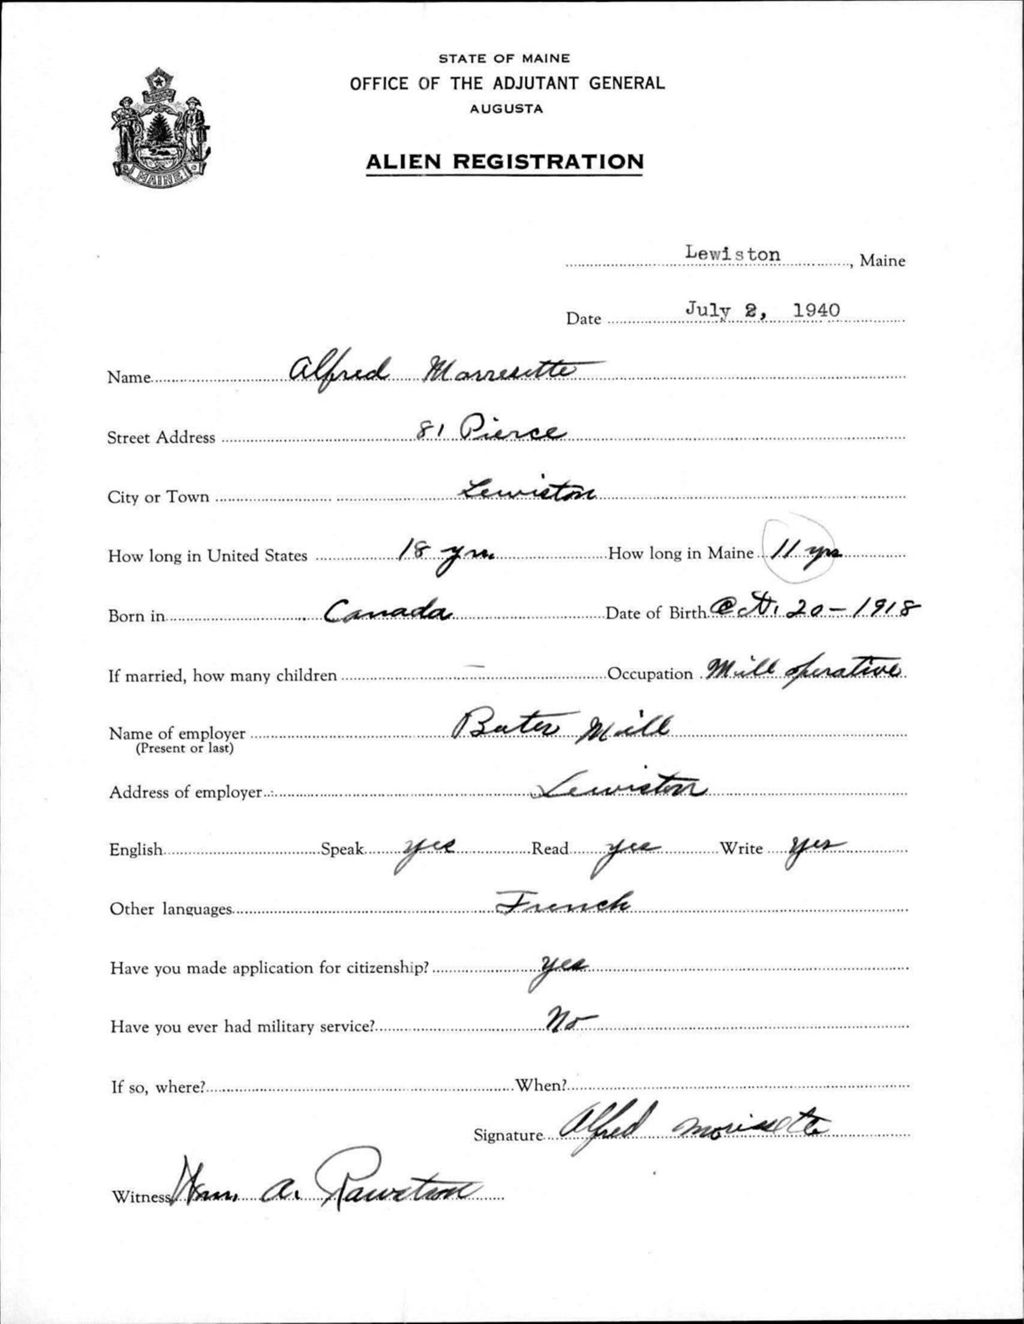 STATE OF MAINE
OFFICE OF THE ADJUTANT GENERAL
AUGUSTA
ALIEN REGISTRATION
MAINE
Lewiston, Maine
Date July 2, 1940
Name Alfred Morresette
Street Address 81 Pierce
City or Town Lewiston
How long in United States 18 yrs. How long in Maine 11 yrs
Born in Canada Date of Birth Oct. 20 - 1918
If married, how many children — Occupation Mill operative
Name of employer Bates Mill
(Present or last)
Address of employer Lewiston
English Speak yes Read yes Write yes
Other languages French
Have you made application for citizenship? yes
Have you ever had military service? No
If so, where? When?
Signature Alfred Morissette
Witness Wm. A. Rawstron